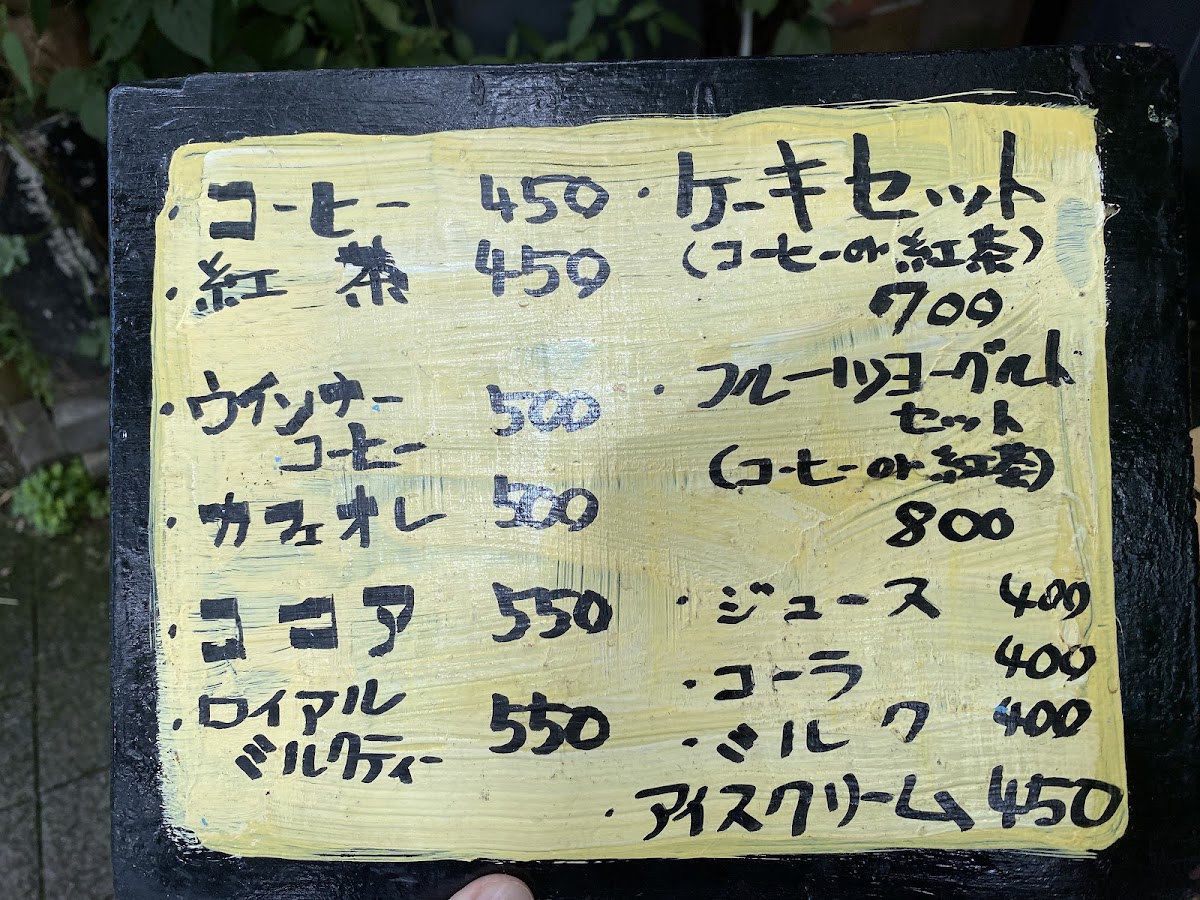 ・コーヒー 450
・紅茶 450
・ウインナー
コーヒー 500
・カフェオレ 500
・ココア 550
・ロイアル
ミルクティー 550
・ケーキセット
(コーヒーor紅茶)
700
・フルーツヨーグルト
セット
(コーヒーor紅茶)
800
・ジュース 400
・コーラ 400
・ミルク 400
・アイスクリーム 450